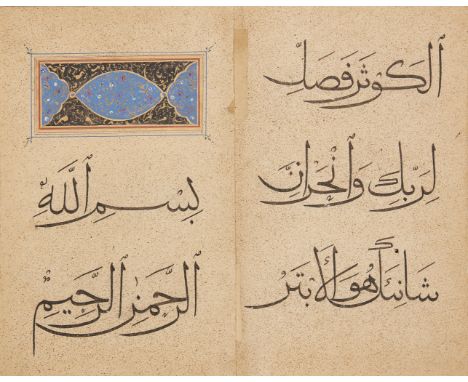 الكَوثَرَ فَصَلِّ
لِرَبِّكَ وَانْحَر اِنَّ
شَانِئَكَ هُوَ الأَبتَرُ
بِسْمِ اللَّهِ
الرَّحمَنِ الرَّحِيمِ